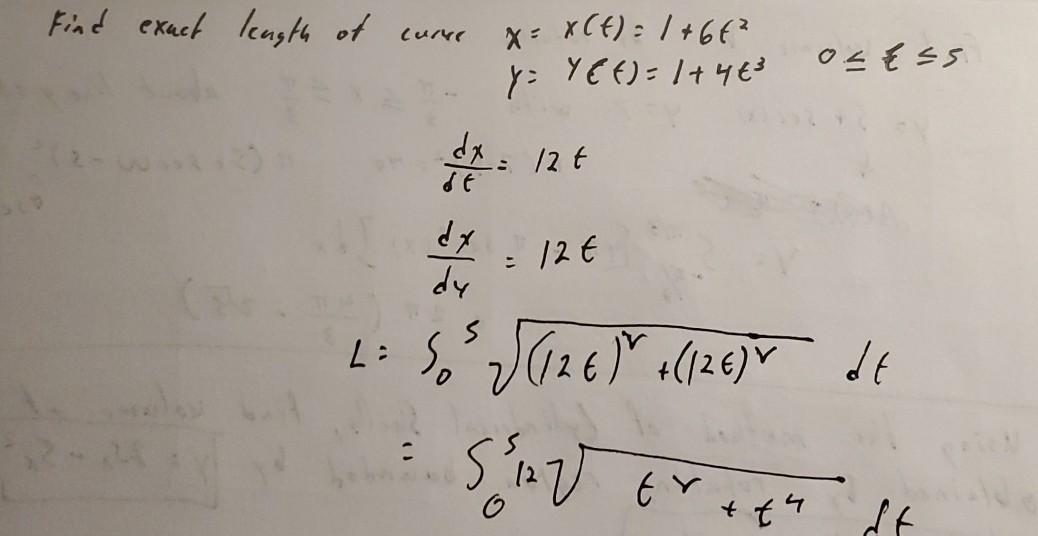 Find exact length of curve x = x(t) = 1 + 6t²
y = y(t) = 1 + 4t³ 0 ≤ t ≤ 5
dx/dt = 12t
dx/dy = 12t
L = ∫₀⁵ √((12t)² + (12t)²) dt
= ∫₀⁵ 12√(t² + t⁴) dt